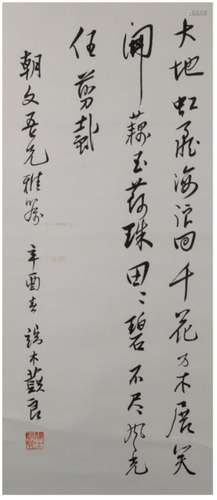 大地虹飛海浪回千花万木展笑
開藕玉荷珠田〻碧不尽風光
任剪裁
朝文吾兄雅属 辛酉春 端木蕻良